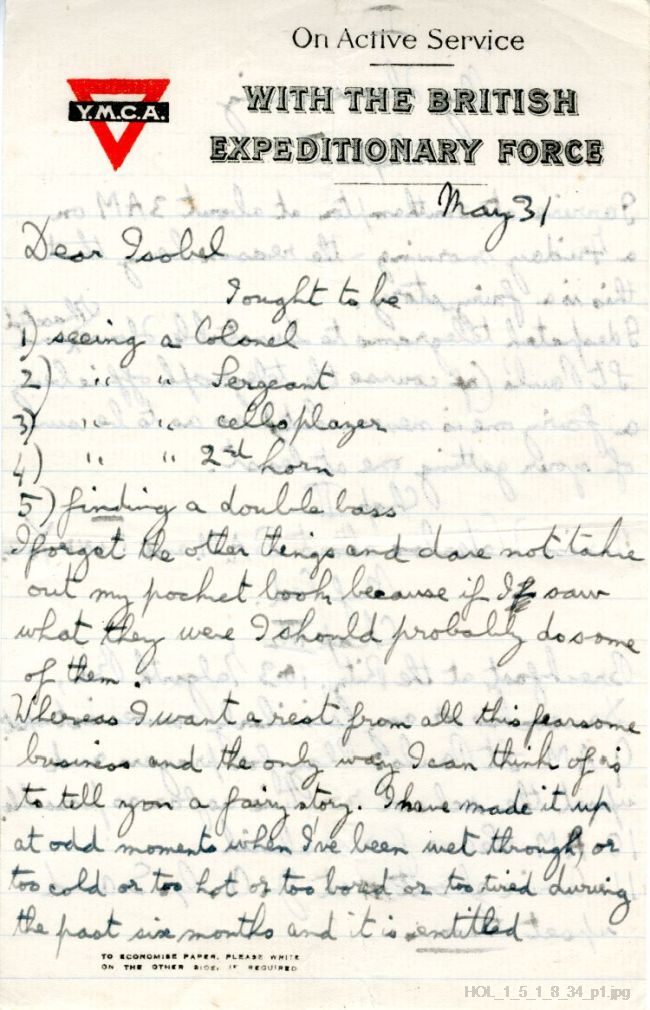 On Active Service
WITH THE BRITISH
EXPEDITIONARY FORCE
Y.M.C.A.
May 31
Dear Isobel
I ought to be
1) seeing a Colonel
2) " " Sergeant
3) " " cello player
4) " " 2nd horn
5) finding a double bass
I forget the other things and dare not take
out my pocket book because if I saw
what they were I should probably do some
of them.
Whereas I want a rest from all this fearsome
business and the only way I can think of is
to tell you a fairy story. I have made it up
at odd moments when I've been wet through, or
too cold or too hot or too bored or too tired during
the past six months and it is entitled
TO ECONOMISE PAPER, PLEASE WRITE
ON THE OTHER SIDE, IF REQUIRED
HOL_1_5_1_8_34_p1.jpg